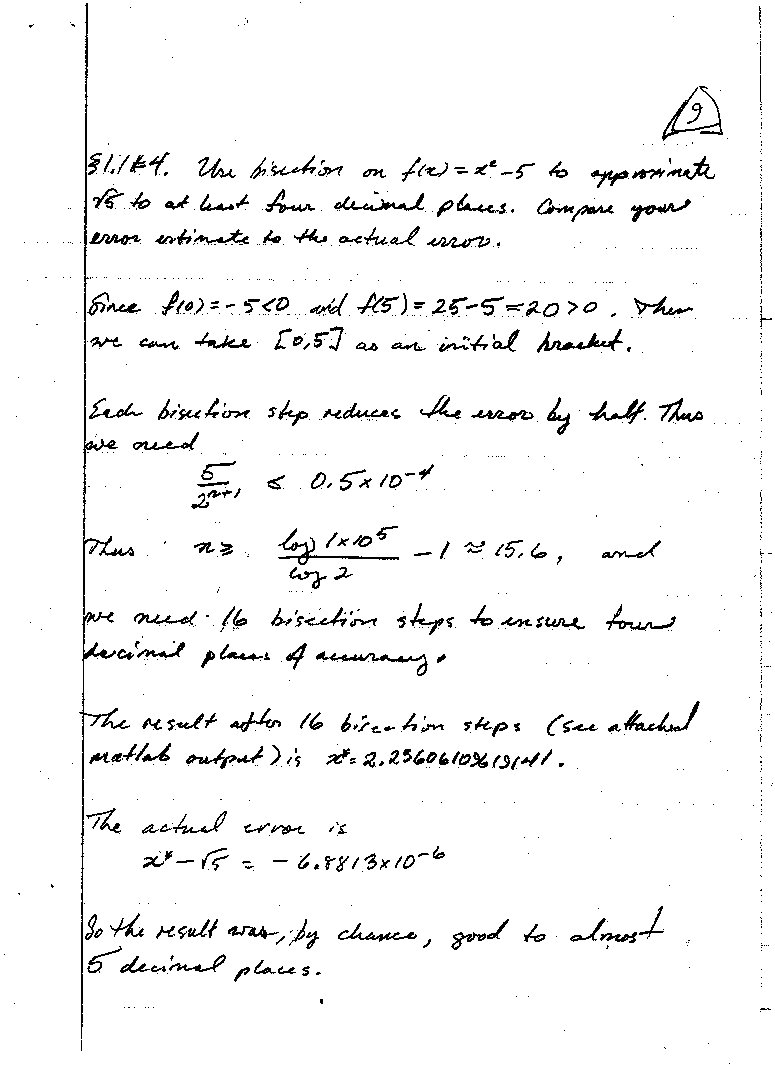 9
§1.1#4. Use bisection on f(x) = x² - 5 to approximate
√5 to at least four decimal places. Compare your
error estimate to the actual error.
Since f(0) = -5 < 0 and f(5) = 25 - 5 = 20 > 0. Then
we can take [0,5] as an initial bracket.
Each bisection step reduces the error by half. Thus
we need
5/2ⁿ⁺¹ ≤ 0.5×10⁻⁴
Thus n ≥ log 1×10⁵ / log 2 - 1 ≈ 15.6, and
we need 16 bisection steps to ensure four
decimal places of accuracy.
The result after 16 bisection steps (see attached
matlab output) is x* = 2.23606109619141.
The actual error is
x* - √5 = -6.8813×10⁻⁶
So the result was, by chance, good to almost
5 decimal places.